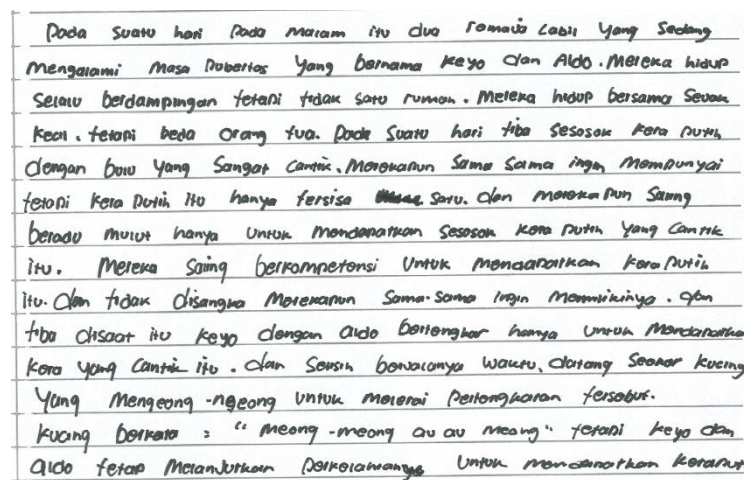 Pada suatu hari pada malam itu dua remaja labil yang sedang
mengalami masa pubertas yang bernama Keyo dan Aldo. Mereka hidup
selalu berdampingan tetapi tidak satu rumah. Mereka hidup bersama sevak
kecil. tetapi beda orang tua. Pada suatu hari tiba sesosok kera putih
dengan bulu yang sangat cantik. Merekapun sama sama ingin mempunyai
tetapi kera putih itu hanya tersisa satu. dan mereka pun saling
beradu mulut hanya untuk mendapatkan sesosok kera putih yang cantik
itu. Mereka saling berkompetensi untuk mendapatkan kera putih
itu. dan tidak disangka merekapun sama-sama ingin memilikinya. dan
tiba disaat itu keyo dengan aldo bertengkar hanya untuk mendapatkan
kera yang cantik itu. dan seusin berjalanya waktu, datang seekor kucing
yang mengeong-ngeong untuk melerai pertengkaran tersebut.
kucing berkata : "meong-meong au au meong" tetapi keyo dan
aldo tetap melanjutkan perkelaianya untuk mendapatkan keraput